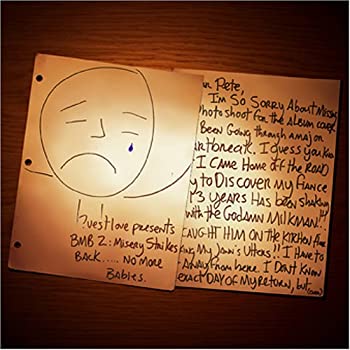 ?uestlove presents
BMB 2: Misery Strikes
BACK..... NO MORE
BABIES.
Pete,
I'm So Sorry About Missing
Photo shoot for the Album cover.
Been Going through a major
heartbreak. I guess you know
I CAME HOME Off the ROAD
to DISCOVER my FIANCE
13 YEARS HAS been shaking
with the GODAMN MILKMAN!!
CAUGHT HIM ON the KITCHEN floor
My Jawn's Utters!! I HAVE to
AWAY from here. I Don't Know
EXACT DAY of My RETURN, but
(over)